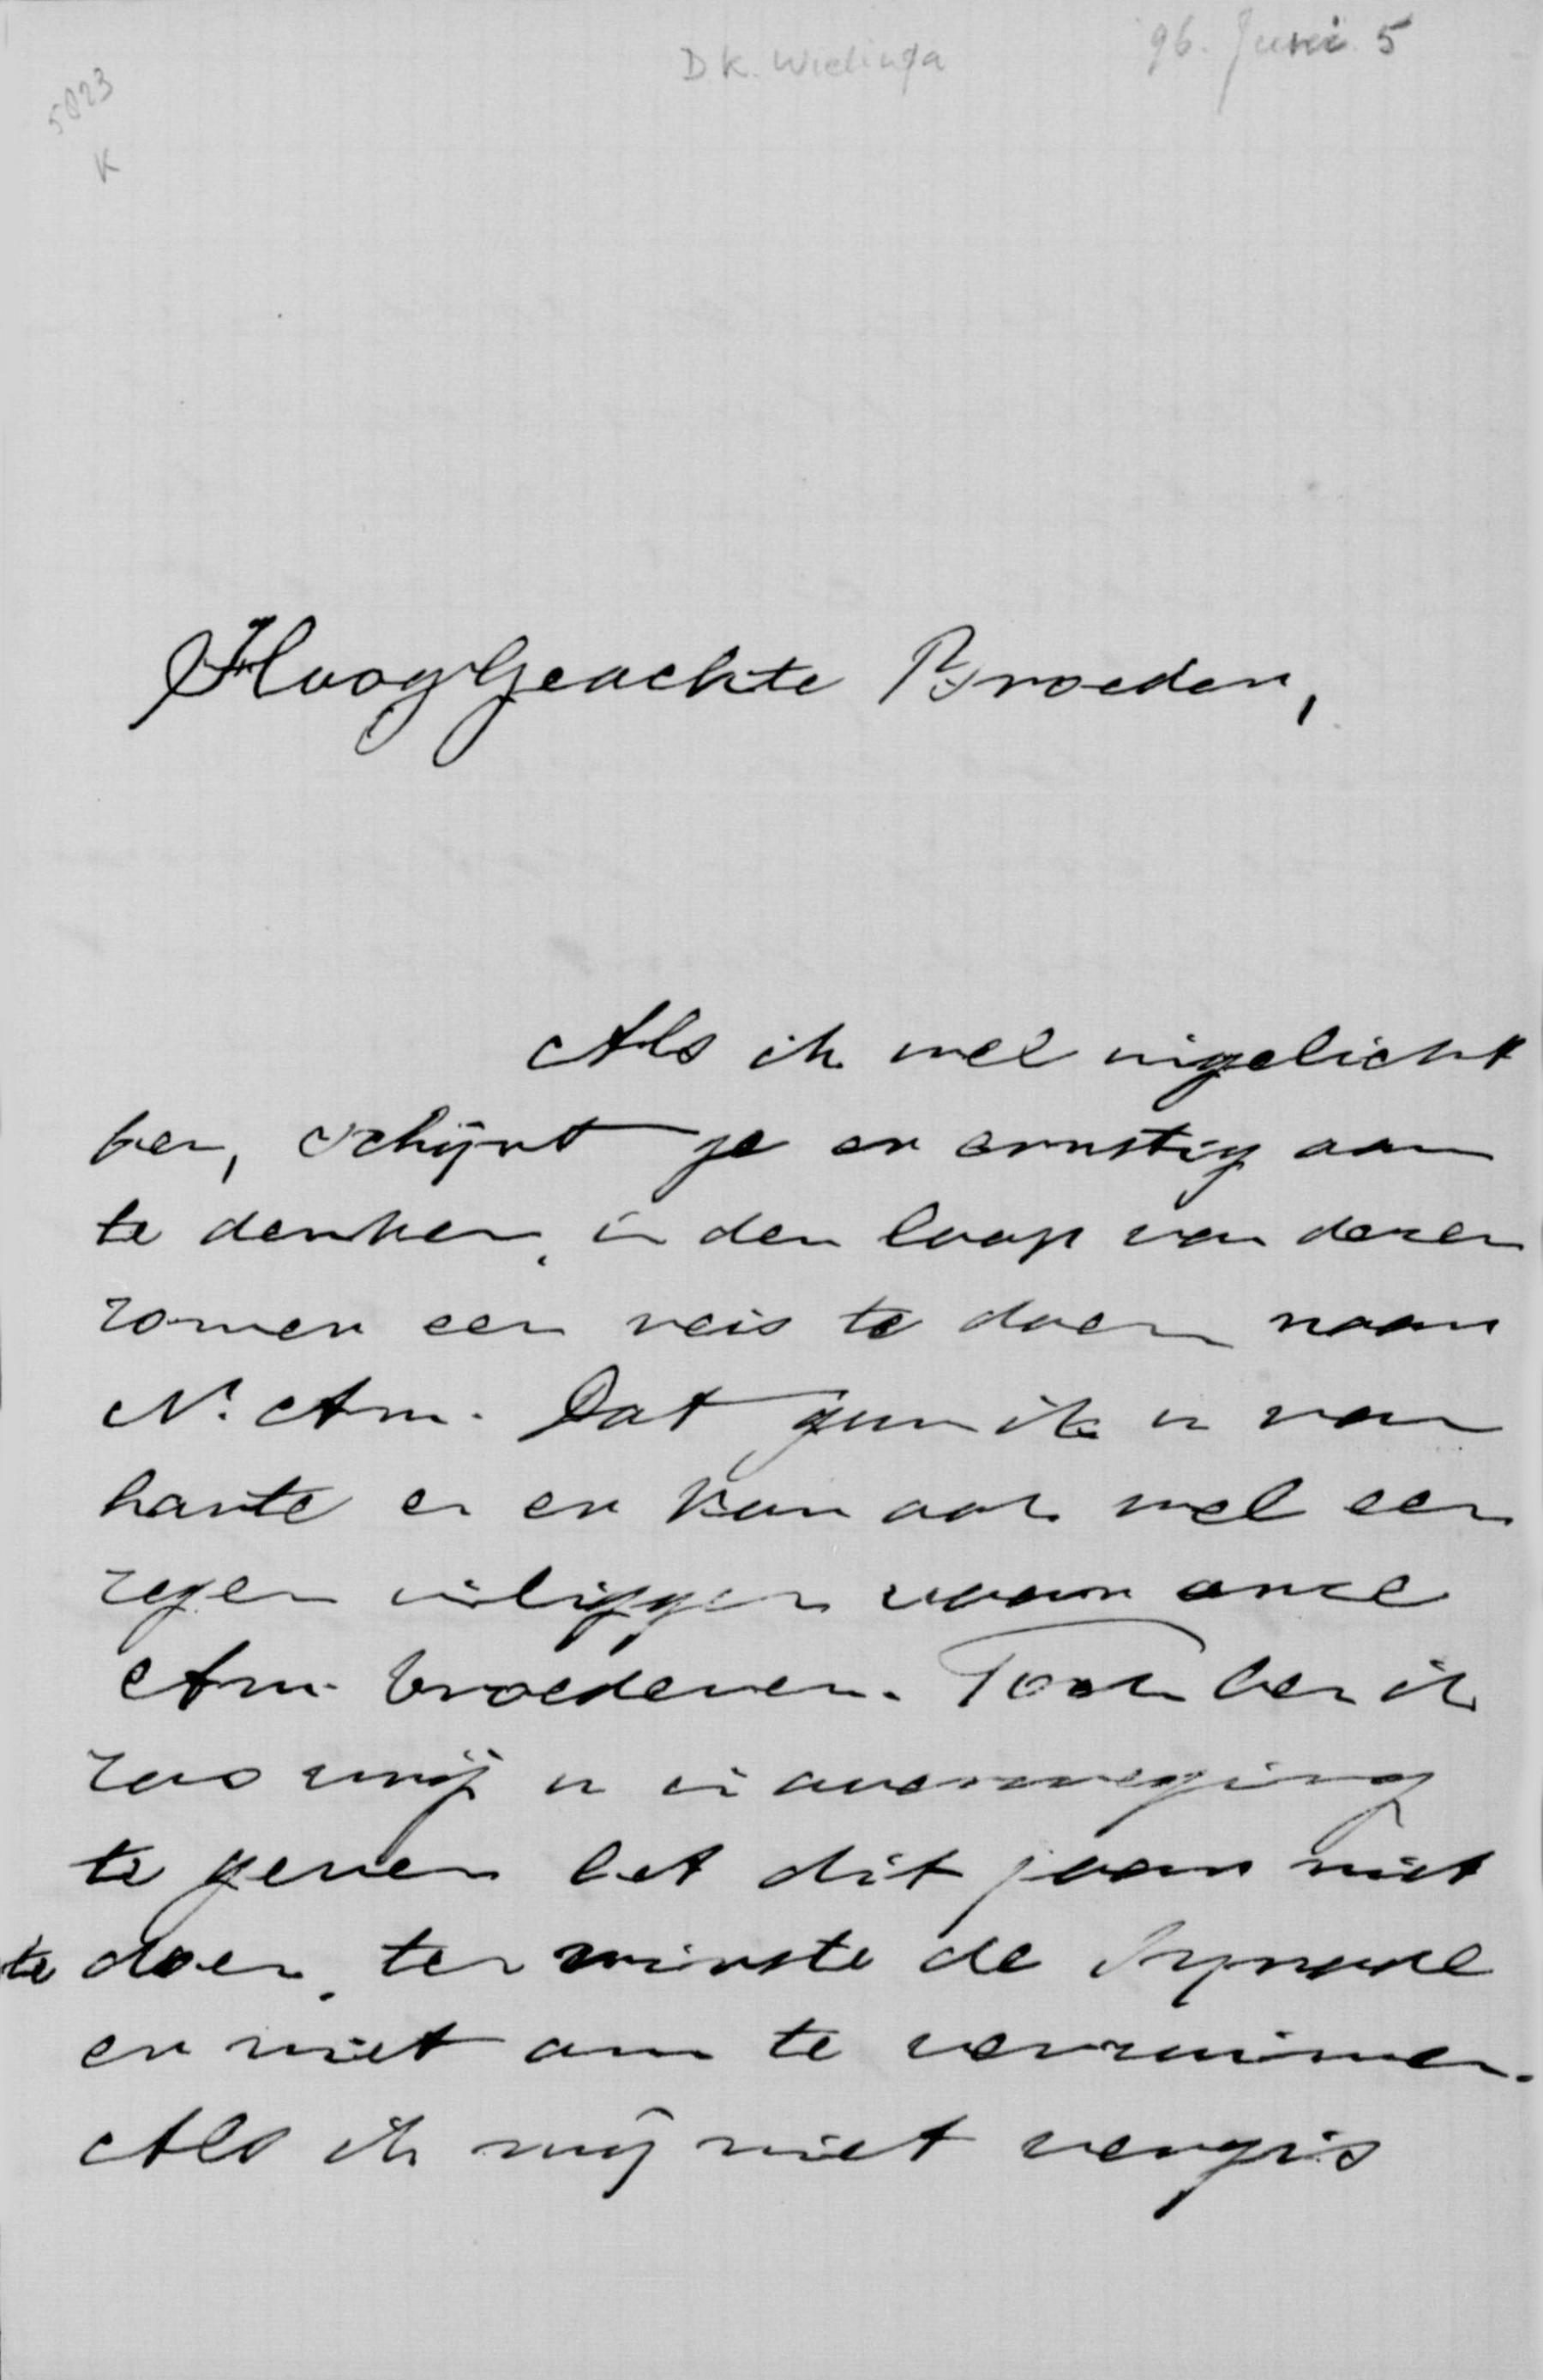 5823
K
D. K. Wielinga
96. Juni 5
HoogGeachte Broeder,
Als ik wel ingelicht
ben, schijnt ge er ernstig aan
te denken, in den loop van dezen
zomer een reis te doen naar
N. Am. Dat gun ik u van
harte en er kan ook wel een
zegen in liggen voor onze
Am. broederen. Toch ben ik
zoo vrij u in overweging
te geven het dit jaar niet
te doen, ten minste de Synode
er niet om te verzuimen.
Als ik mij niet vergis